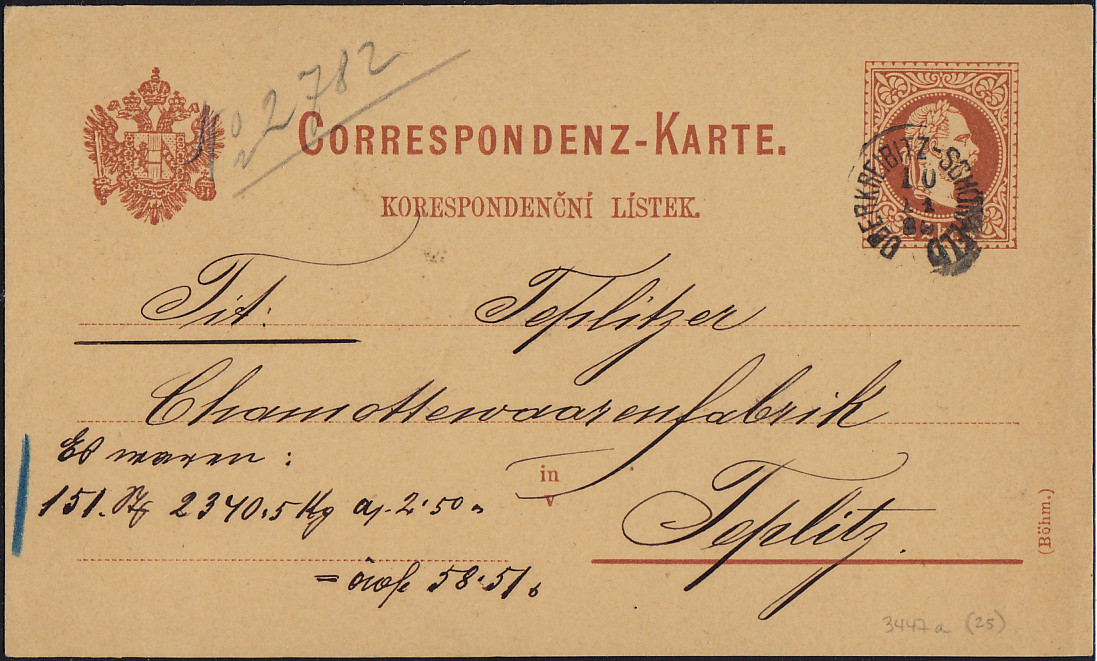 No 2782
CORRESPONDENZ-KARTE.
KORESPONDENČNÍ LÍSTEK.
OBERKREIBITZ-SCHÖNFELD
10
11
Tit: Teplitzer
Chamottewaarenfabrik
Es waren:
in
v
151. 2340.5 Kg 2.50
Teplitz.
= 58.51
(Böhm.)
3447a (25)